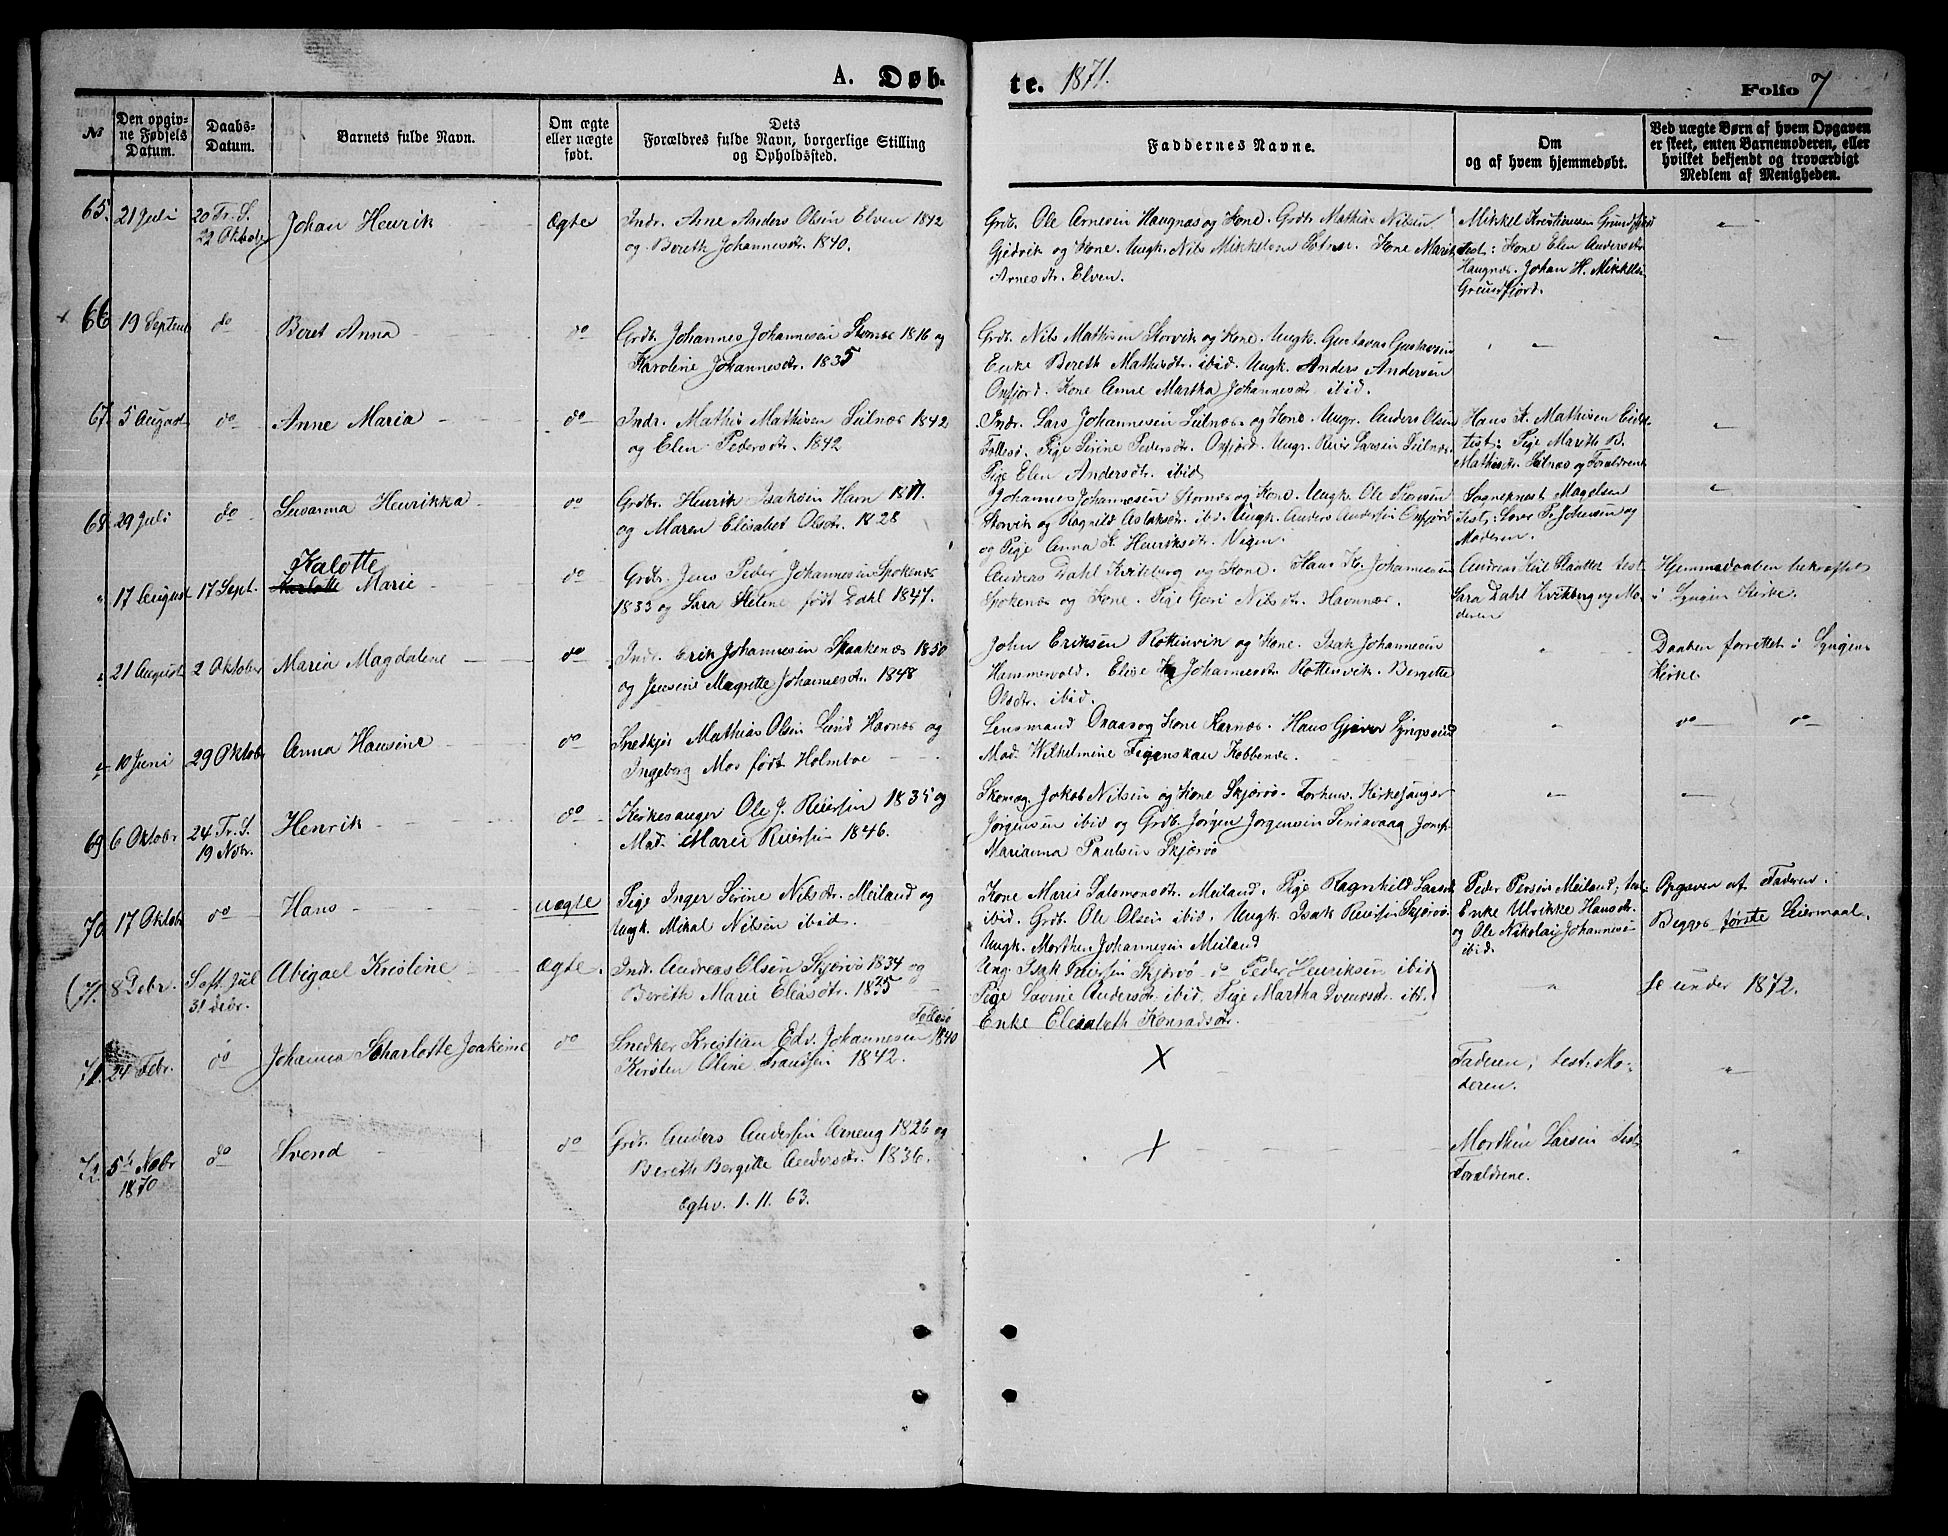 A. Døb-
te. 1871.
Folio 7
№
Den opgiv-
ne Fødsels
Datum.
Daabs-
Datum.
Barnets fulde Navn.
Om ægte
eller uægte
født.
Dets
Forældres fulde Navn, borgerlige Stilling
og Opholdssted.
Faddernes Navne.
Om
og af hvem hjemmedøbt.
Ved uægte Børn af hvem Opgaven
er skeet, enten Barnemoderen, eller
hvilket bekjendt og troværdigt
Medlem af Menigheden.
65.
21 Juli
20 Tr. S.
22 Oktober
Johan Henrik
Ægte
Indr. Arne Anders Olsen Elven 1842
og Bereth Johannesdtr. 1840.
Grdb. Ole Arnesen Haugnæs og Kone. Grdb. Mathis Nilsen
Gjedvik og Kone. Ungk. Nils Mikkelsen. Kone Marit
Arnesdtr. Elven.
Mikkel Kristiansen Grundfjord
test: Kone Elen Andersdtr.
Haugnæs. Johan H. Mikkels.
Grundfjord.
"
66
19 Septemb
do
Beret Anna
do
Grdb. Johannes Johannesen 1816 og
Karoline Johannesdtr. 1835
Grdb. Nils Mathisen Storvik og Kone. Ungk. Gustavas Gustavsen
Enke Bereth Mathisdtr. ibid. Ungk. Anders Andersen
Oxfjord. Kone Anne Martha Johannesdtr ibid.
"
"
67
5 August
do
Anne Maria
do
Indr. Mathis Mathisen 1842
og Elen Pedersdtr. 1842
Indr. Lars Johannesen og Kone. Ungk. Anders Olsen
Follesø. Pige Serine Pedersdtr. Oxfjord. Ungk. Reier Larsen
Pige Elen Andersdtr. ibid
Hans K. Mathisen
test: Pige Mareth B.
Mathisdtr. og Forældrene
"
68
29 Juli
do
Susanna Henrikka
do
Grdbr. Henrik Isaksen Havn 1817.
og Maren Elisabet Olsdtr. 1828
Johannes Johannesen og Kone. Ungk. Ole
Storvik og Ragnild Aslaksdtr. ibid. Ungk. Anders Andersen Oxfjord
og Pige Anna K. Henriksdtr.
Sogneprest Magelsen
test: Johnsen og
Moderen.
"
"
17 August
17 Sept.
Kalotte
Marie
do
Grdbr. Jens Peder Johannesen Spokenæs
1833 og Sara Helene født Dahl 1847.
Anders Dahl Kvitberg og Kone. Hans K. Johannesen
Spokenæs og Kone. Pige Guri Nilsdtr. Havnnæs.
Andreas test.
Sara Dahl Kvitberg og Mo-
deren
Hjemmedaaben bekræftet
i Lyngen Kirke.
"
21 August
2 Oktober
Maria Magdalene
do
Indr. Erik Johannesen Spaakenæs 1850
og Jensine Magrette Johannesdtr. 1848
John Eriksen Rottenvik og Kone. Isak Johannesen
Hammervold. Elise Johannesdtr Rottenvik. Bergitte
Olsdtr. ibid.
"
Daaben forrettet i Lyngen
Kirke
"
10 Juni
29 Oktob
Anna Hansine
do
Snedker Mathias Olsen Lund Havnæs og
Ingeborg Mos født Holmboe
Lensmand og Kone Karnæs. Hans Gjæver Lyngseid
Mad. Wilhelmine Figenskau Kobbenæs.
"
do do
69
6 Oktobr.
24 Tr. S.
19 Nobr.
Henrik
do
Kirkesanger Ole J. Reiersen 1835 og
Mad. Marie Reiersen 1846.
Skomag. Jakob Nilsen og Kone Skjærvø. Forhens. Kirkesanger
Jørgensen ibid og Grdb. Jørgen Jørgensen Jomf.
Marianna Paulsen Skjærvø
"
"
70
17 Oktob
do
Hans
uægte
Pige Inger Serine Nilsdtr. Meiland og
Ungk. Mikal Nilsen ibid.
Kone Marie Salomonsdtr. Meiland. Pige Ragnhild Larsdtr
ibid. Grdb. Ole Olsen ibid. Ungk. Isak Reiersen Skjærvø.
Ungk. Morthen Johannesen Meiland
Peder Persen Meiland; test.
Enke Ulrikke Hansdtr.
og Ole Nikolai Johannesen
ibid.
Opgaven af Faderen.
Begges første Leiermaal.
(71.
8 Debr.
S. eft. Jul
31 Debr.
Abigael Kristine
Ægte.
Ind. Andreas Olsen Skjærvø 1834 og
Bereth Marie Eliasdtr. 1835
Ung. Isak Reiersen Skjærvø do Peder Henriksen ibid
Pige Lavine Andersdtr. ibid. Pige Martha Svensdtr. ibd.
Enke Elisabeth Konradsdtr.
"
se under 1872.
71.
24 Febr.
do
Johanna Scharlotte Joakime
do
Follesø
Snedker Kristian Edv. Johannesen 1840
Kirsten Oline Frandsen 1842.
X
Faderen; test: Mo-
deren.
"
72.
5te Nobr
1870
do
Svend
do
Grdb. Anders Andersen Arneng 1826 og
Bereth Bergitte Andersdtr. 1836.
Egtev. 1. 11. 63.
X
Morthen Larsen test.
Forældrene.
"